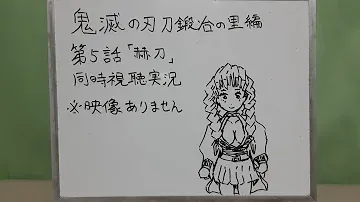 鬼滅の刃刀鍛冶の里編
第5話「赫刀」
同時視聴実況
※映像ありません